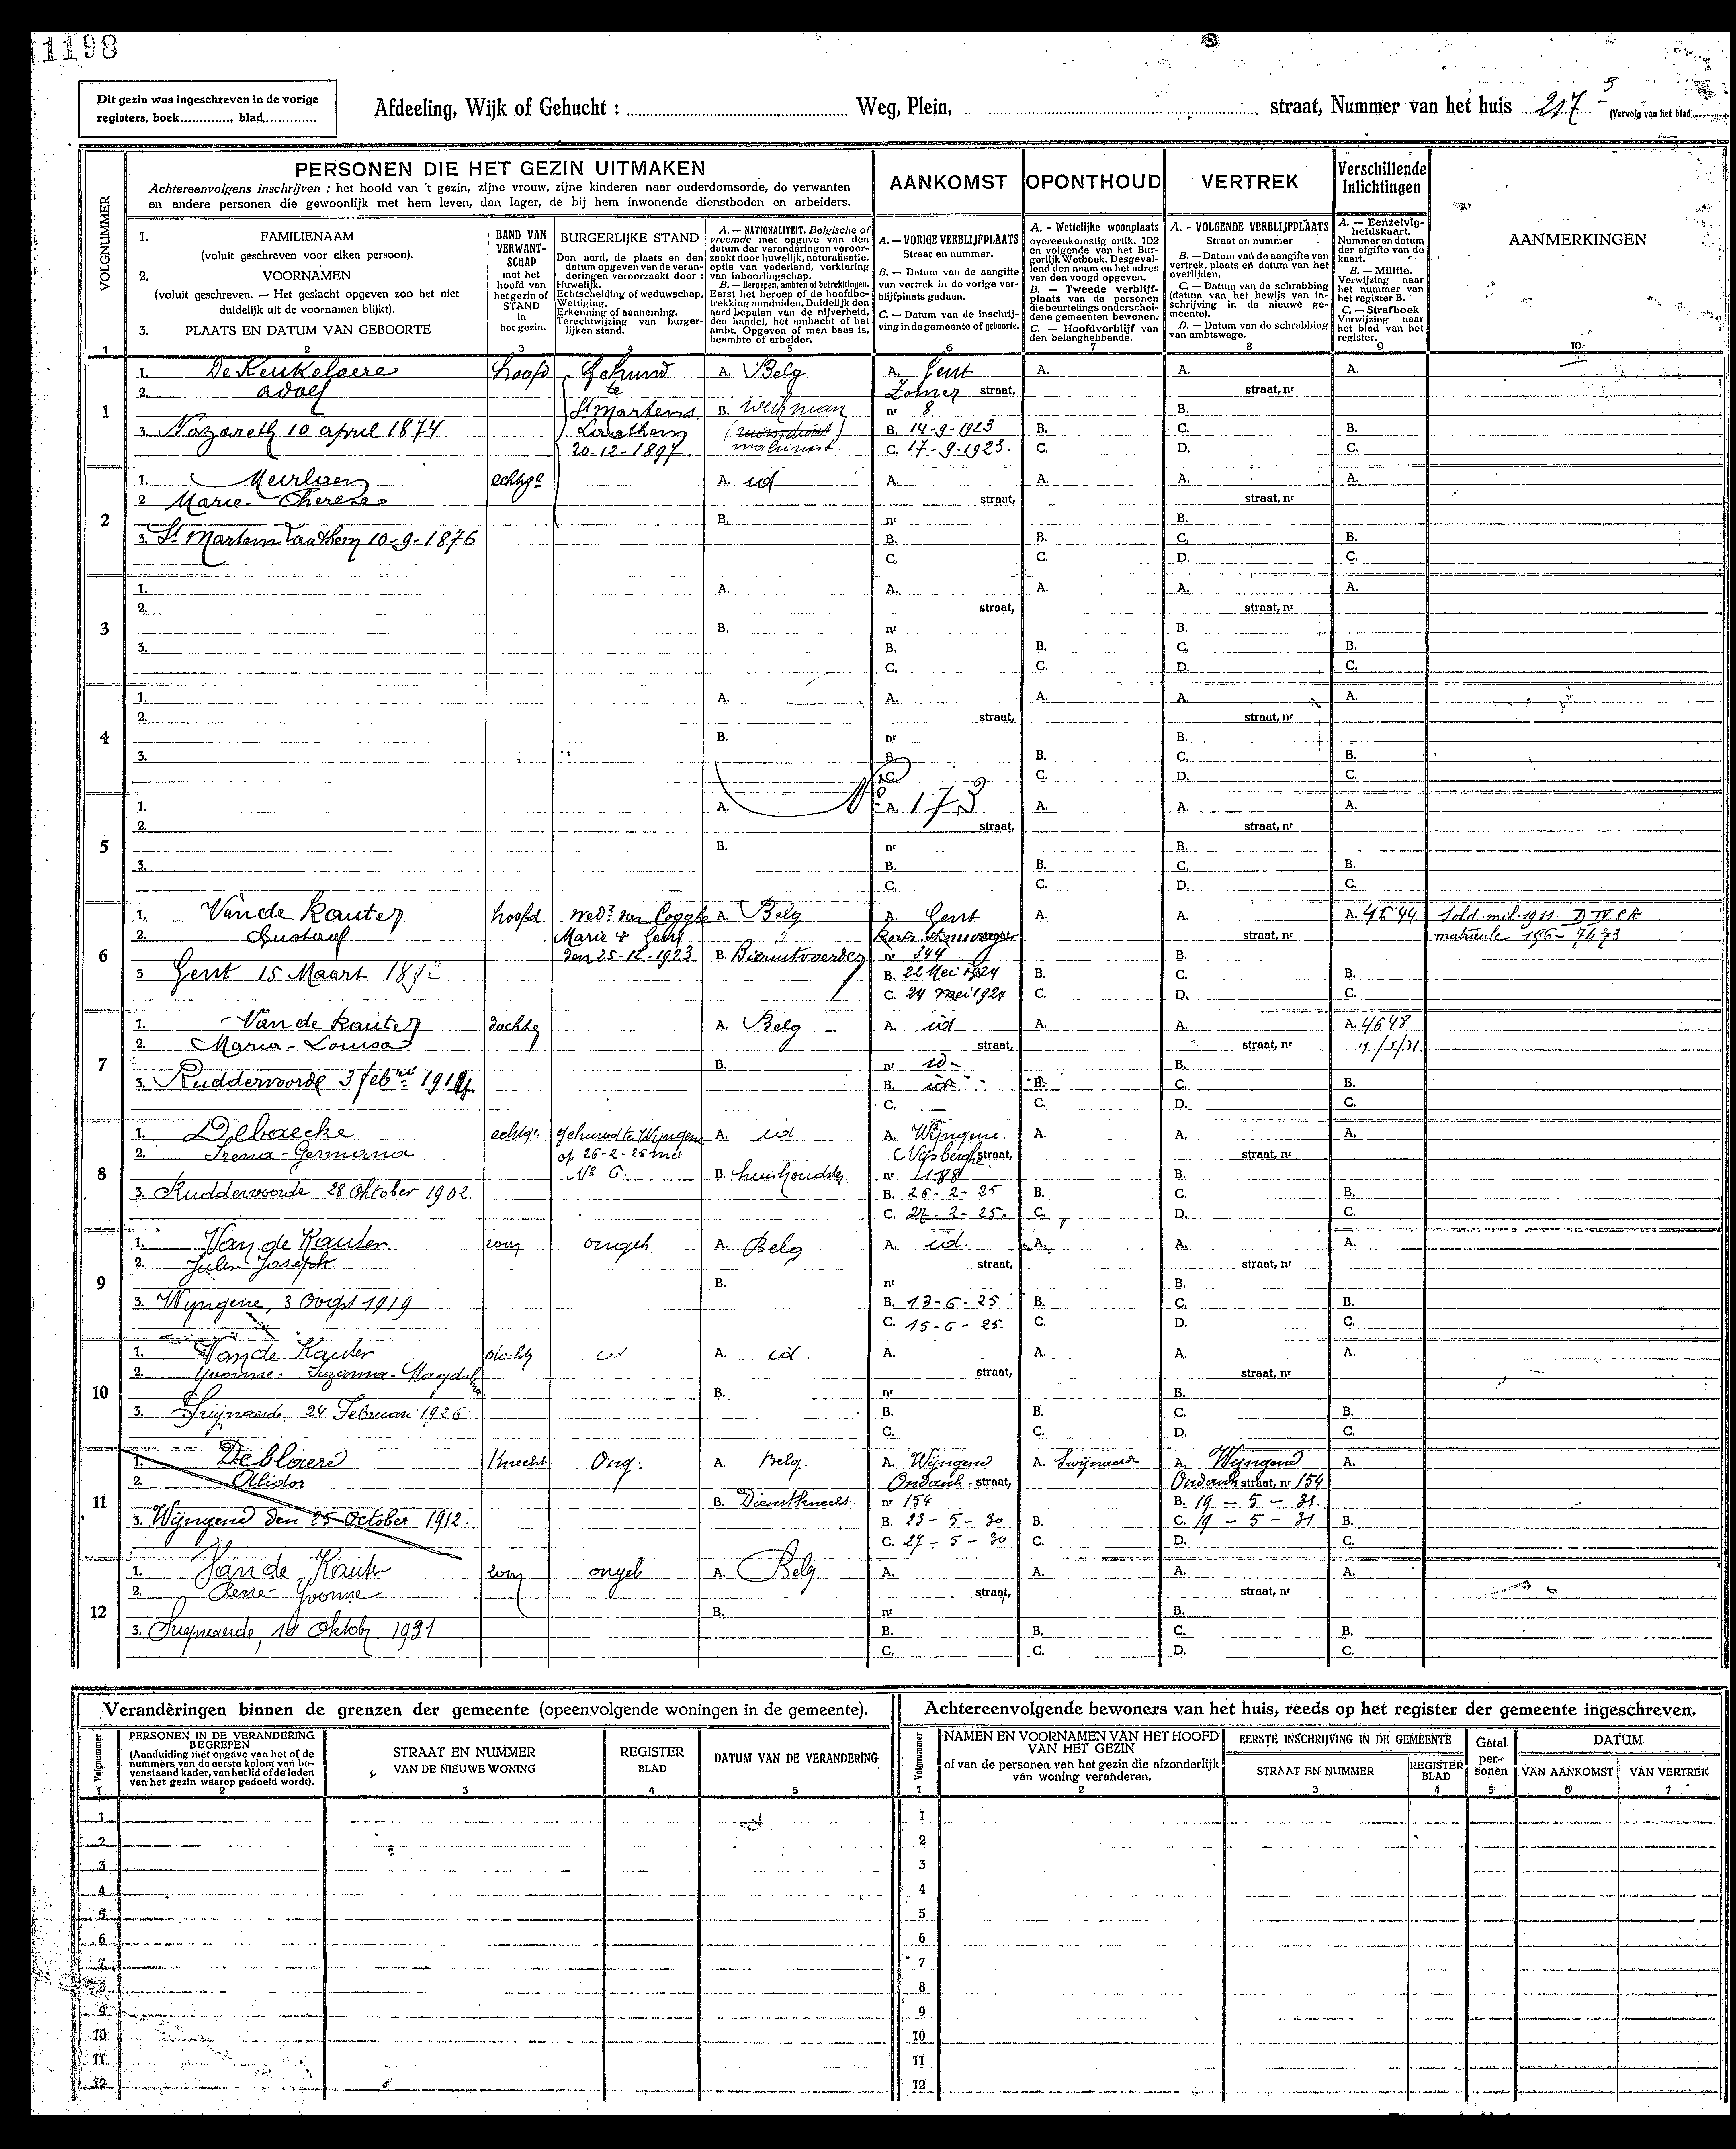 1198
Dit gezin was ingeschreven in de vorige
registers, boek............, blad.............
Afdeeling, Wijk of Gehucht : ........ Weg, Plein, ........ straat, Nummer van het huis 217
(Vervolg van het blad
PERSONEN DIE HET GEZIN UITMAKEN
Achtereenvolgens inschrijven : het hoofd van 't gezin, zijne vrouw, zijne kinderen naar ouderdomsorde, de verwanten
en andere personen die gewoonlijk met hem leven, dan lager, de bij hem inwonende dienstboden en arbeiders.
AANKOMST
OPONTHOUD
VERTREK
Verschillende
Inlichtingen
VOLGNUMMER
1. FAMILIENAAM
(voluit geschreven voor elken persoon).
2. VOORNAMEN
(voluit geschreven. — Het geslacht opgeven zoo het niet
duidelijk uit de voornamen blijkt).
3. PLAATS EN DATUM VAN GEBOORTE
BAND VAN
VERWANT-
SCHAP
met het
hoofd van
het gezin of
STAND
in
het gezin.
BURGERLIJKE STAND
Den aard, de plaats en den
datum opgeven van de veran-
deringen veroorzaakt door :
Huwelijk.
Echtscheiding of weduwschap.
Wettiging.
Erkenning of aanneming.
Terechtwijzing van burger-
lijken stand.
A. — NATIONALITEIT. Belgische of
vreemde met opgave van den
datum der veranderingen veroor-
zaakt door huwelijk, naturalisatie,
optie van vaderland, verklaring
van inboorlingschap.
B. — Beroepen, ambten of betrekkingen.
Eerst het beroep of de hoofdbe-
trekking aanduiden. Duidelijk den
aard bepalen van de nijverheid,
den handel, het ambacht of het
ambt. Opgeven of men baas is,
beambte of arbeider.
A. — VORIGE VERBLIJFPLAATS
Straat en nummer.
B. — Datum van de aangifte
van vertrek in de vorige ver-
blijfplaats gedaan.
C. — Datum van de inschrij-
ving in de gemeente of geboorte.
A. - Wettelijke woonplaats
overeenkomstig artik. 102
en volgende van het Bur-
gerlijk Wetboek. Desgeval-
lend den naam en het adres
van den voogd opgeven.
B. — Tweede verblijf-
plaats van de personen
die beurtelings onderschei-
dene gemeenten bewonen.
C. — Hoofdverblijf van
den belanghebbende.
A. - VOLGENDE VERBLIJFPLAATS
Straat en nummer
B. — Datum van de aangifte van
vertrek, plaats en datum van het
overlijden.
C. — Datum van de schrabbing
(datum van het bewijs van in-
schrijving in de nieuwe ge-
meente).
D. — Datum van de schrabbing
van ambtswege.
A. — Eenzelvig-
heidskaart.
Nummer en datum
der afgifte van de
kaart.
B. — Militie.
Verwijzing naar
het nummer van
het register B.
C. — Strafboek
Verwijzing naar
het blad van het
register.
AANMERKINGEN
1 2 3 4 5 6 7 8 9 10
1. De Keukelaere hoofd Gehuwd A. Belg A. Gent A. A. A.
2. Adolf te Zomer straat, straat, nr
1 St Martens B. Werkman nr 8 B.
3. Nazareth 10 april 1874 Laathem B. 14-9-1923 B. C. B.
20-12-1897. machinist. C. 17-9-1923. C. D. C.
1. echtge A. id A. A. A. A.
2 Marie-Therese straat, straat, nr
2 B. nr B.
3. St Martens Laathem 10-9-1876 B. B. C. B.
C. C. D. C.
1. A. A. A. A. A.
2. straat, straat, nr
3 B. nr B.
3. B. B. C. B.
C. C. D. C.
1. A. A. A. A. A.
2. straat, straat, nr
4 B. nr B.
3. B. B. C. B.
C. C. D. C.
1. A. A. 173 A. A. A.
2. straat, straat, nr
5 B. nr B.
3. B. B. C. B.
C. C. D. C.
1. Van de Kauter hoofd wedr van Cogghe A. Belg A. Gent A. A. A. 4644 Sold. mil. 1911
2. Gustaaf Marie + Gent straat, nr matricule 156-7473
6 den 25-12-1923 B. Bieruitvoerder nr 344 B.
3 Gent 15 Maart B. 22 Mei 1924 B. C. B.
C. 24 mei 1924 C. D. C.
1. Van de Kauter dochter A. Belg A. id A. A. A. 4648
2. Maria-Louisa straat, straat, nr 19/5/31
7 B. nr id B.
3. Ruddervoorde 3 febri B. id B. C. B.
C. C. D. C.
1. Debaecke echtge. gehuwd te Wijngene A. id A. Wijngene. A. A. A.
2. Irena-Germana op 26-2-25 met straat, straat, nr
8 No 6. B. huishoudster nr B.
3. Ruddervoorde 28 Oktober 1902. B. 26-2-25 B. C. B.
C. 27-2-25. C. D. C.
1. Van de Kauter zoon ongeh. A. Belg A. id. A. A. A.
2. Jules Joseph straat, straat, nr
9 B. nr B.
3. Wyngene, 3 Oogst 1919 B. 13-6-25 B. C. B.
C. 15-6-25. C. D. C.
1. Van de Kauter dochter id A. id. A. A. A. A.
2. Yvonne-Suzanna-Magdalena straat, straat, nr
10 B. nr B.
3. Swijnaerde, 24 Februari 1926 B. B. C. B.
C. C. D. C.
1. Knecht Ong. A. Belg. A. Wijngene A. Swijnaerde A. Wyngene A.
2. straat, straat, nr 154
11 B. Dienstknecht. nr 154 B. 19-5-31.
3. Wijngene den 25 October 1912. B. 23-5-30 B. C. 19-5-31 B.
C. 27-5-30 C. D. C.
1. Van de Kauter zoon ongeh A. Belg A. A. A. A.
2. Rene-Yvonne straat, straat, nr
12 B. nr B.
3. Swijnaerde, Oktober 1931 B. B. C. B.
C. C. D. C.
Veranderingen binnen de grenzen der gemeente (opeenvolgende woningen in de gemeente).
Volgnummer
PERSONEN IN DE VERANDERING
BEGREPEN
(Aanduiding met opgave van het of de
nummers van de eerste kolom van bo-
venstaand kader, van het lid of de leden
van het gezin waarop gedoeld wordt).
STRAAT EN NUMMER
VAN DE NIEUWE WONING
REGISTER
BLAD
DATUM VAN DE VERANDERING
1 2 3 4 5
1
2
3
4
5
6
7
8
9
10
11
12
Achtereenvolgende bewoners van het huis, reeds op het register der gemeente ingeschreven.
Volgnummer
NAMEN EN VOORNAMEN VAN HET HOOFD
VAN HET GEZIN
of van de personen van het gezin die afzonderlijk
van woning veranderen.
EERSTE INSCHRIJVING IN DE GEMEENTE
STRAAT EN NUMMER
REGISTER
BLAD
Getal
per-
sonen
DATUM
VAN AANKOMST
VAN VERTREK
1 2 3 4 5 6 7
1
2
3
4
5
6
7
8
9
10
11
12